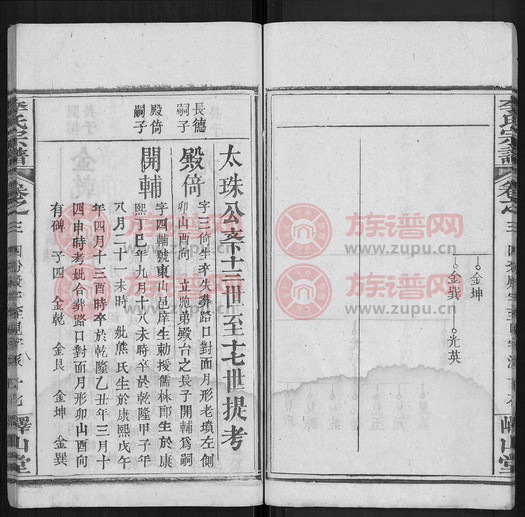 金坤
金巽
光英
太珠公支下十三世至十七世提考
長德
嗣子
殿倚
字三倚生卒失葬路口對面月形老墳左側
卯山酉向 立胞弟殿台之長子開輔為嗣
殿倚
嗣子
開輔
字四輔號東山邑庠生勅授儒林郎生於康
熙丁巳年九月十八未時卒於乾隆甲子年
八月二十一未時 妣熊氏生於康熙戊午
年四月十三酉時卒於乾隆乙丑年三月十
四申時考妣合葬路口對面月形卯山酉向
有碑 子四 金乾 金艮 金坤 金巽
李氏宗譜
卷之三
嶧山堂
族谱网
www.zupu.cn